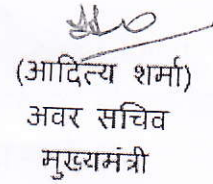 (आदित्य शर्मा)
अवर सचिव
मुख्यमंत्री